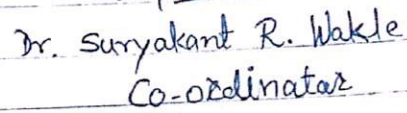 Dr. Suryakant R. Wakle
Co-ordinatar